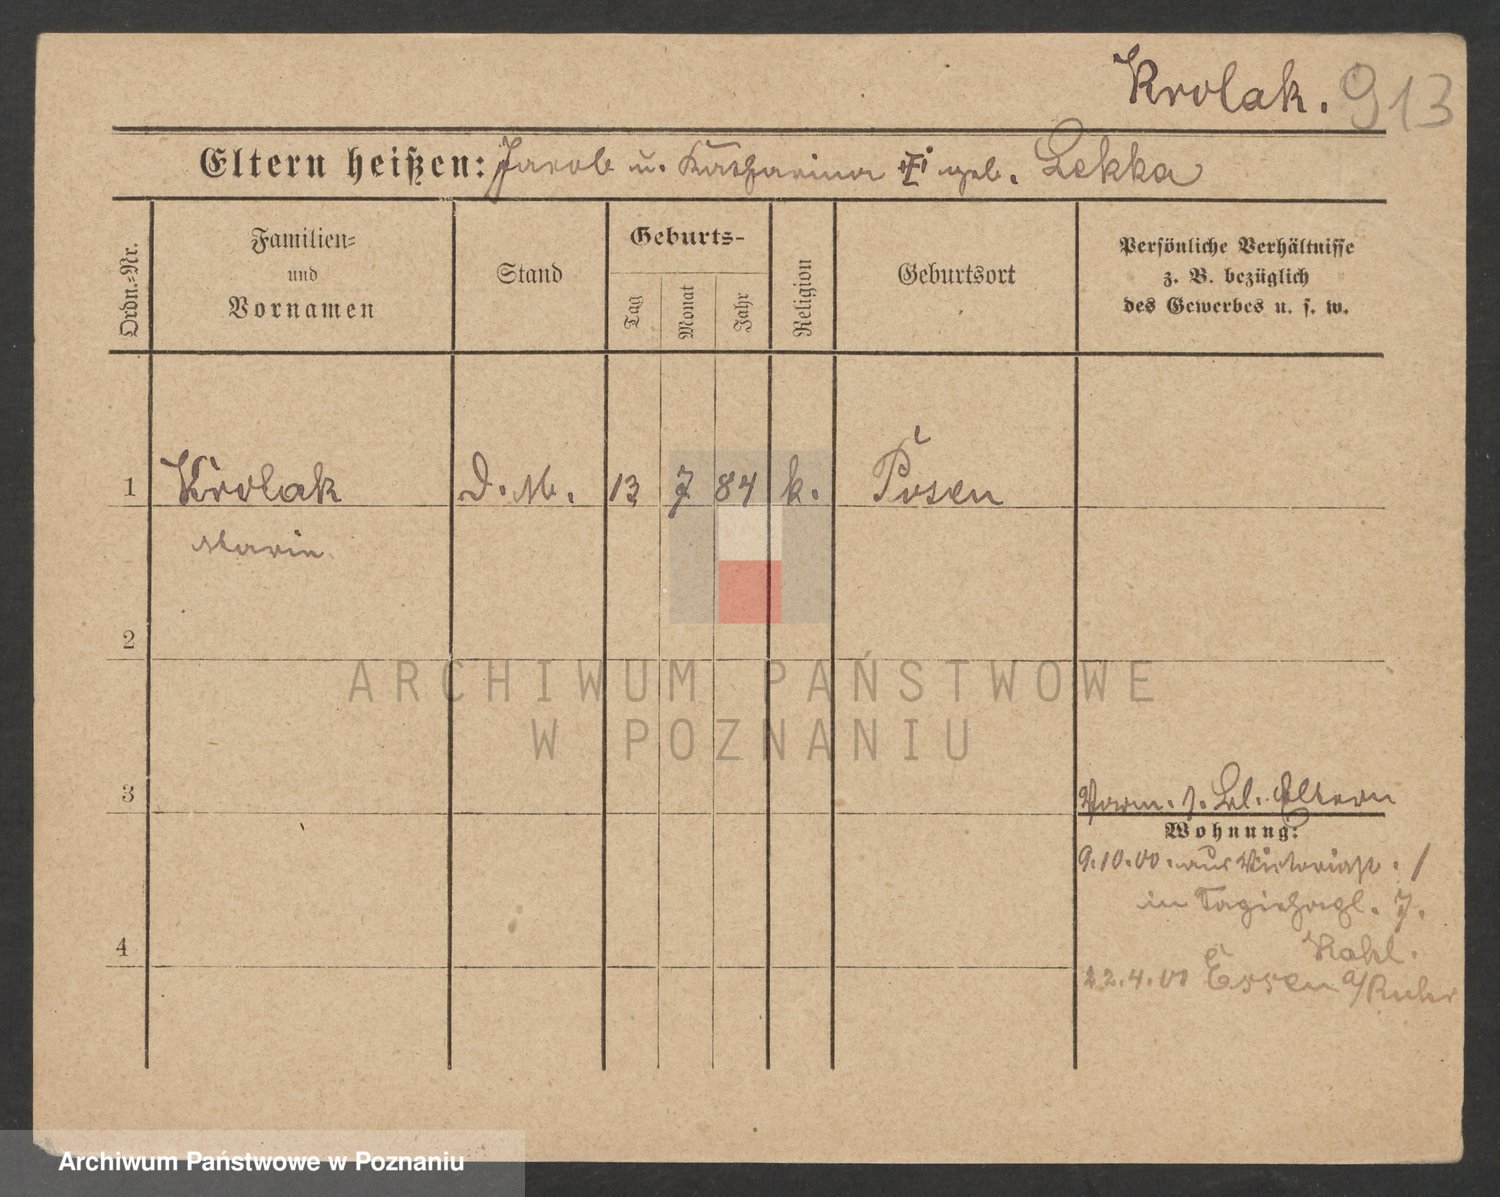 Krolak. 913
Eltern heißen: Jacob u. Katharina geb. Lekka
Ordn.-Nr.
Familien-
und
Vornamen
Stand
Geburts-
Tag
Monat
Jahr
Religion
Geburtsort
Persönliche Verhältnisse
z. B. bezüglich
des Gewerbes u. s. w.
1 Krolak D. M. 13 7 84 k. Posen
Marie
2
ARCHIWUM PAŃSTWOWE
W POZNANIU
3
Eltern
Wohnung:
9.10.00. aus Victoriast. 1
in 7.
Kahl.
4
22.4.01 Essen a/Ruhr
Archiwum Państwowe w Poznaniu